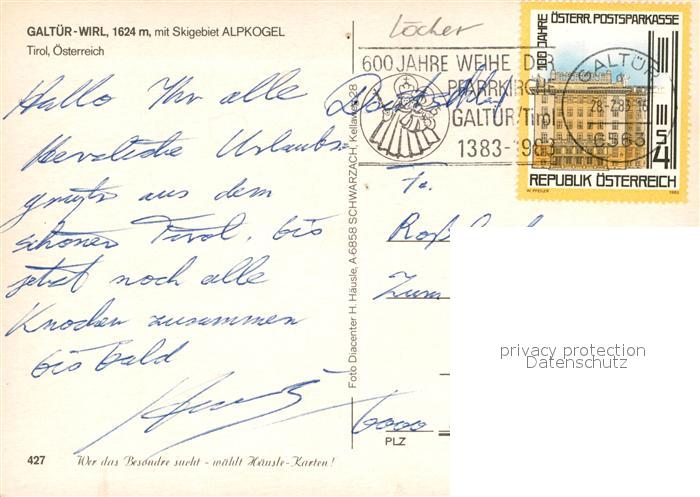 GALTÜR-WIRL, 1624 m, mit Skigebiet ALPKOGEL
Tirol, Österreich
Hallo Ihr alle
Herzliche Urlaubs-
grüße aus dem
schönen Tirol, bis
jetzt noch alle
Knochen zusammen
bis bald
427
Wer das Besondre sucht - wählt Häusle-Karten!
Foto Diacenter H. Häusle, A-6858 SCHWARZACH, Kellaweg 28
Löcher
600 JAHRE WEIHE DER
PFARRKIRCHE
GALTÜR/Tirol
1383-1983
GALTÜR
28.-2.83-15
6563
100 JAHRE ÖSTERR. POSTSPARKASSE
S 4
REPUBLIK ÖSTERREICH
1983
Fa.
Zum
6000
PLZ
privacy protection
Datenschutz